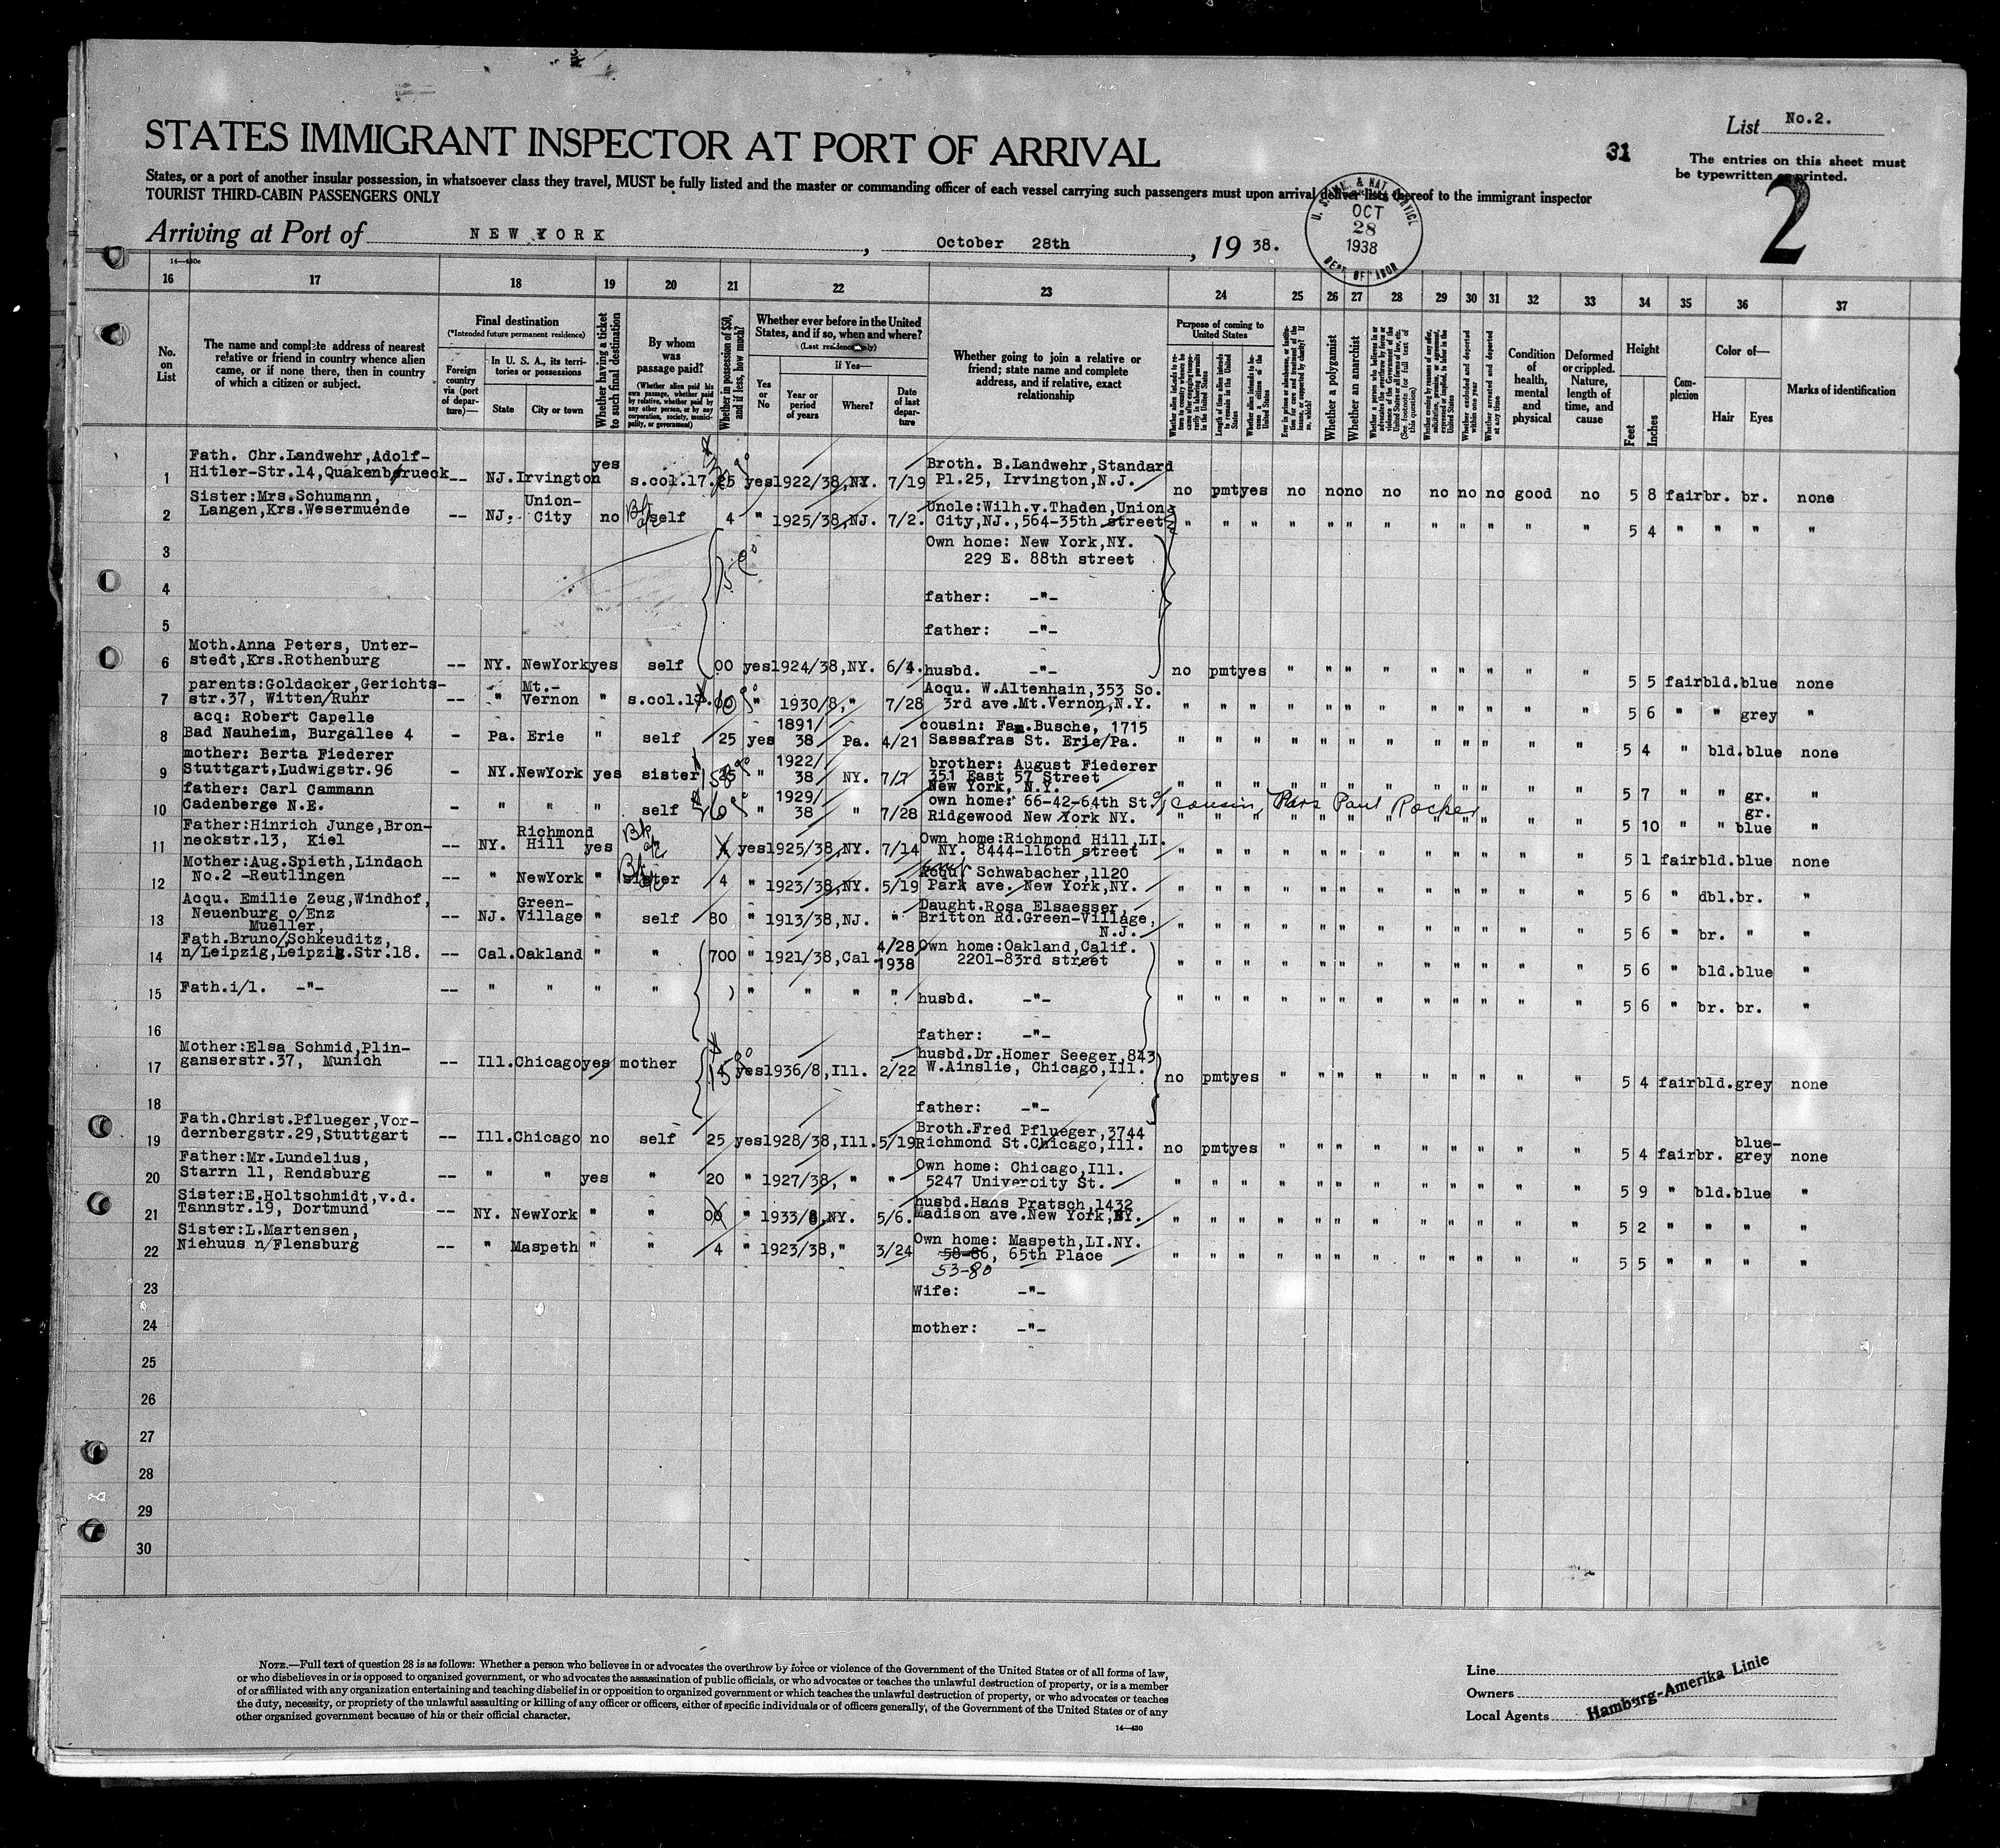 List No.2.
STATES IMMIGRANT INSPECTOR AT PORT OF ARRIVAL
31
The entries on this sheet must
be typewritten or printed.
States, or a port of another insular possession, in whatsoever class they travel, MUST be fully listed and the master or commanding officer of each vessel carrying such passengers must upon arrival deliver lists thereof to the immigrant inspector
TOURIST THIRD-CABIN PASSENGERS ONLY
2
Arriving at Port of NEW YORK, October 28th, 19 38.
OCT
28
1938
DEPT OF LABOR
14—430c
16 17 18 19 20 21 22 23 24 25 26 27 28 29 30 31 32 33 34 35 36 37
No. on List
The name and complete address of nearest relative or friend in country whence alien came, or if none there, then in country of which a citizen or subject.
Final destination
(*Intended future permanent residence)
Foreign country via (port of departure)—
In U. S. A., its territories or possessions
State
City or town
Whether having a ticket to such final destination
By whom was passage paid?
(Whether alien paid his own passage, whether paid by relative, whether paid by any other person, or by any corporation, society, municipality, or government)
Whether in possession of $50, and if less, how much?
Whether ever before in the United States, and if so, when and where?
(Last residence only)
Yes or No
If Yes—
Year or period of years
Where?
Date of last departure
Whether going to join a relative or friend; state name and complete address, and if relative, exact relationship
Purpose of coming to United States
Whether a polygamist
Whether an anarchist
Condition of health, mental and physical
Deformed or crippled. Nature, length of time, and cause
Height
Feet
Inches
Complexion
Color of—
Hair
Eyes
Marks of identification
Fath. Chr.Landwehr,Adolf-
yes
Broth. B.Landwehr,Standard
1 Hitler-Str.14,Quakenbrueck -- NJ. Irvington s.col.17. 25 yes 1922/38,NY. 7/19 Pl.25, Irvington,N.J. no pmt yes no no no no no no no good no 5 8 fair br. br. none
Sister:Mrs.Schumann, Union- Uncle:Wilh.v.Thaden,Union
2 Langen,Krs.Wesermuende -- NJ. City no self 4 " 1925/38,NJ. 7/2. City,NJ.,564-35th street " " " " " " " " " " " " 5 4 " " " "
3 Own home: New York,NY.
229 E. 88th street
4 father: -"-
5 father: -"-
Moth.Anna Peters, Unter-
6 stedt,Krs.Rothenburg -- NY. NewYork yes self 00 yes 1924/38,NY. 6/4. husbd. -"- no pmt yes " " " " " " " " " 5 5 fair bld. blue none
parents:Goldacker,Gerichts- Mt.- Acqu. W.Altenhain,353 So.
7 str.37, Witten/Ruhr -- " Vernon " s.col.17. 60 " 1930/8, " 7/28 3rd ave.Mt.Vernon,N.Y. " " " " " " " " " " " " 5 6 " " grey "
acq: Robert Capelle 1891/ cousin: Fam.Busche, 1715
8 Bad Nauheim, Burgallee 4 - Pa. Erie " self 25 yes 38 Pa. 4/21 Sassafras St. Erie/Pa. " " " " " " " " " " " " 5 4 " bld. blue none
mother: Berta Fiederer 1922/ brother: August Fiederer
9 Stuttgart,Ludwigstr.96 - NY. NewYork yes sister 25 " 38 NY. 7/7 351 East 57 Street
New York, N.Y. " " " " " " " " " " " " 5 7 " " gr. "
father: Carl Cammann 1929/ own home: 66-42-64th St. cousin, Paul
10 Cadenberge N.E. - " " " self " 38 " 7/28 Ridgewood New York NY. " " " " " " " " " " " " 5 10 " " gr. blue "
Father:Hinrich Junge,Bron- Richmond Own home:Richmond Hill,LI.
11 neckstr.13, Kiel -- NY. Hill yes yes 1925/38,NY. 7/14 NY. 8444-116th street " " " " " " " " " " " " 5 1 fair bld. blue none
Mother:Aug.Spieth,Lindach Acqu. Schwabacher,1120
12 No.2 -Reutlingen -- " NewYork " sister 4 " 1923/38,NY. 5/19 Park ave. New York,NY. " " " " " " " " " " " " 5 6 " dbl. br. "
Acqu. Emilie Zeug,Windhof, Green- Daught.Rosa Elsaesser,
13 Neuenburg o/Enz -- NJ. Village " self 80 " 1913/38,NJ. " Britton Rd.Green-Village,
N.J. " " " " " " " " " " " " 5 6 " br. " "
Mueller,
Fath.Bruno/Schkeuditz, 4/28 Own home:Oakland,Calif.
14 n/Leipzig,Leipzig.Str.18. -- Cal. Oakland " " 700 " 1921/38,Cal. 1938 2201-83rd street " " " " " " " " " " " " 5 6 " bld. blue "
15 Fath.i/l. -"- -- " " " " " " " " husbd. -"- " " " " " " " " " " " " 5 6 " br. br. "
16 father: -"-
Mother:Elsa Schmid,Plin- husbd.Dr.Homer Seeger,843
17 ganserstr.37, Munich -- Ill. Chicago yes mother yes 1936/8,Ill. 2/22 W.Ainslie, Chicago,Ill. no pmt yes " " " " " " " " " 5 4 fair bld. grey none
18 father: -"-
Fath.Christ.Pflueger,Vor- Broth.Fred Pflueger,3744
19 dernbergstr.29,Stuttgart -- Ill. Chicago no self 25 yes 1928/38,Ill. 5/19 Richmond St.Chicago,Ill. no pmt yes " " " " " " " " " 5 4 fair br. blue-grey none
Father:Mr.Lundelius, Own home: Chicago,Ill.
20 Starrn 11, Rendsburg -- " " yes " 20 " 1927/38, " " 5247 University St. " " " " " " " " " " " " 5 9 " bld. blue "
Sister:E.Holtschmidt,v.d. husbd.Hans Pratsch,1432
21 Tannstr.19, Dortmund -- NY. NewYork " " 00 " 1933/8,NY. 5/6. Madison ave.New York,NY. " " " " " " " " " " " " 5 2 " " " "
Sister:L.Martensen, Own home: Maspeth,LI.NY.
22 Niehuus n/Flensburg -- " Maspeth " " 4 " 1923/38, " 3/24 58-86, 65th Place " " " " " " " " " " " " 5 5 " " " "
53-80
23 Wife: -"-
24 mother: -"-
25
26
27
28
29
30
NOTE.—Full text of question 28 is as follows: Whether a person who believes in or advocates the overthrow by force or violence of the Government of the United States or of all forms of law,
or who disbelieves in or is opposed to organized government, or who advocates the assassination of public officials, or who advocates or teaches the unlawful destruction of property, or is a member
of or affiliated with any organization entertaining and teaching disbelief in or opposition to organized government or which teaches the unlawful destruction of property, or who advocates or teaches
the duty, necessity, or propriety of the unlawful assaulting or killing of any officer or officers, either of specific individuals or of officers generally, of the Government of the United States or of any
other organized government because of his or their official character.
14—430
Line
Owners
Local Agents
Hamburg-Amerika Linie